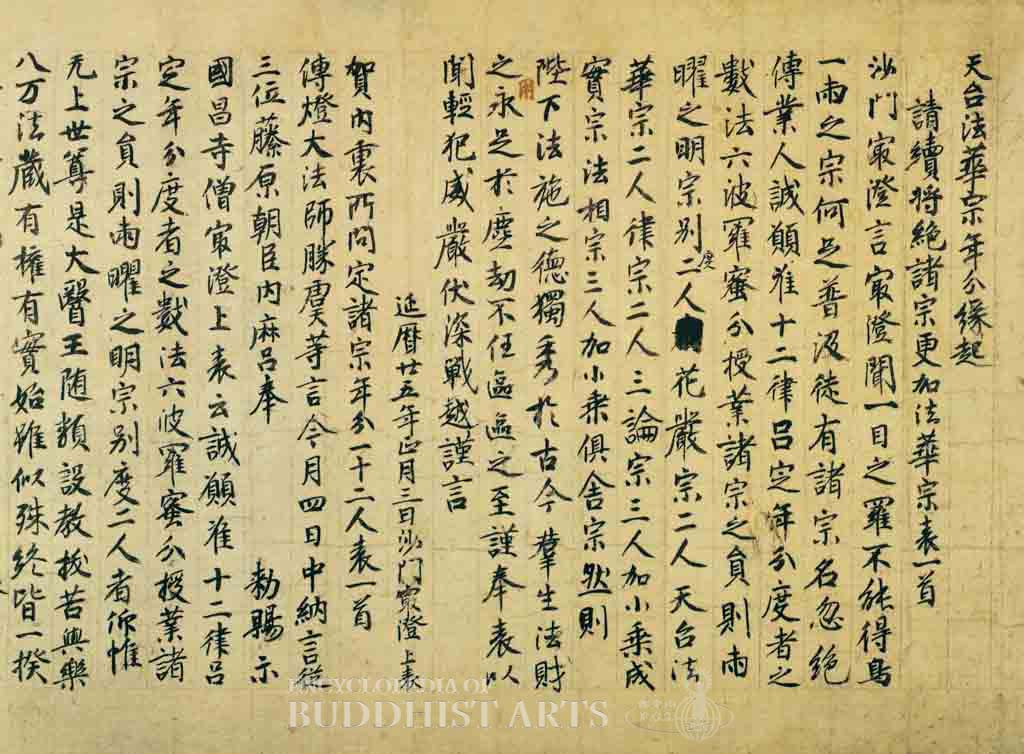 天台法華宗年分緣起
請續將絕諸宗更加法華宗表一首
沙門最澄言最澄聞一目之羅不能得鳥
一兩之宗何足普汲徒有諸宗名忽絕
傳業人誠願准十二律呂定年分度者之
數法六波羅蜜分授業諸宗之員則兩
曜之明宗別度二人花嚴宗二人天台法
華宗二人律宗二人三論宗三人加小乘成
實宗法相宗三人加小乘俱舍宗然則
陛下法施之德獨秀於古今群生法財
之用永足於塵劫不任區區之至謹奉表以
聞輕犯威嚴伏深戰越謹言
延曆廿五年正月三日沙門最澄上表
賀內裏所問定諸宗年分一十二人表一首
傳燈大法師勝虞等言今月四日中納言從
三位藤原朝臣內麻呂奉 勅賜示
國昌寺僧最澄上表云誠願准十二律呂
定年分度者之數法六波羅蜜分授業諸
宗之員則兩曜之明宗別度二人者仰惟
无上世尊是大醫王随類設教拔苦與樂
八万法蔵有權有實始雖似殊終皆一揆
ENCYCLOPEDIA OF
BUDDHIST ARTS